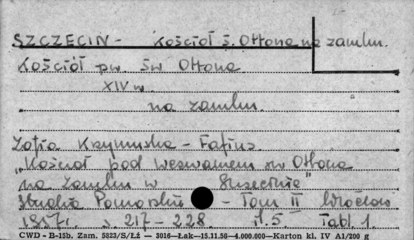 SZCZECIN - Kościół ś. Ottona na zamku.
Kościół pw. Św Ottona
XIV w.
na zamku.
Zofia Krzymuska-Fafius
"Kościół pod wezwaniem św Ottona
na Zamku w Szczecinie"
Studia Pomorskie - Tom II Wrocław
1957r. s 217-228 il. 5. Tabl. 1
CWD - B-15b. Zam. 5823/S/Łź - 3016-Łak-15.11.56-4.000.000-Karton kl. IV A1/200 g